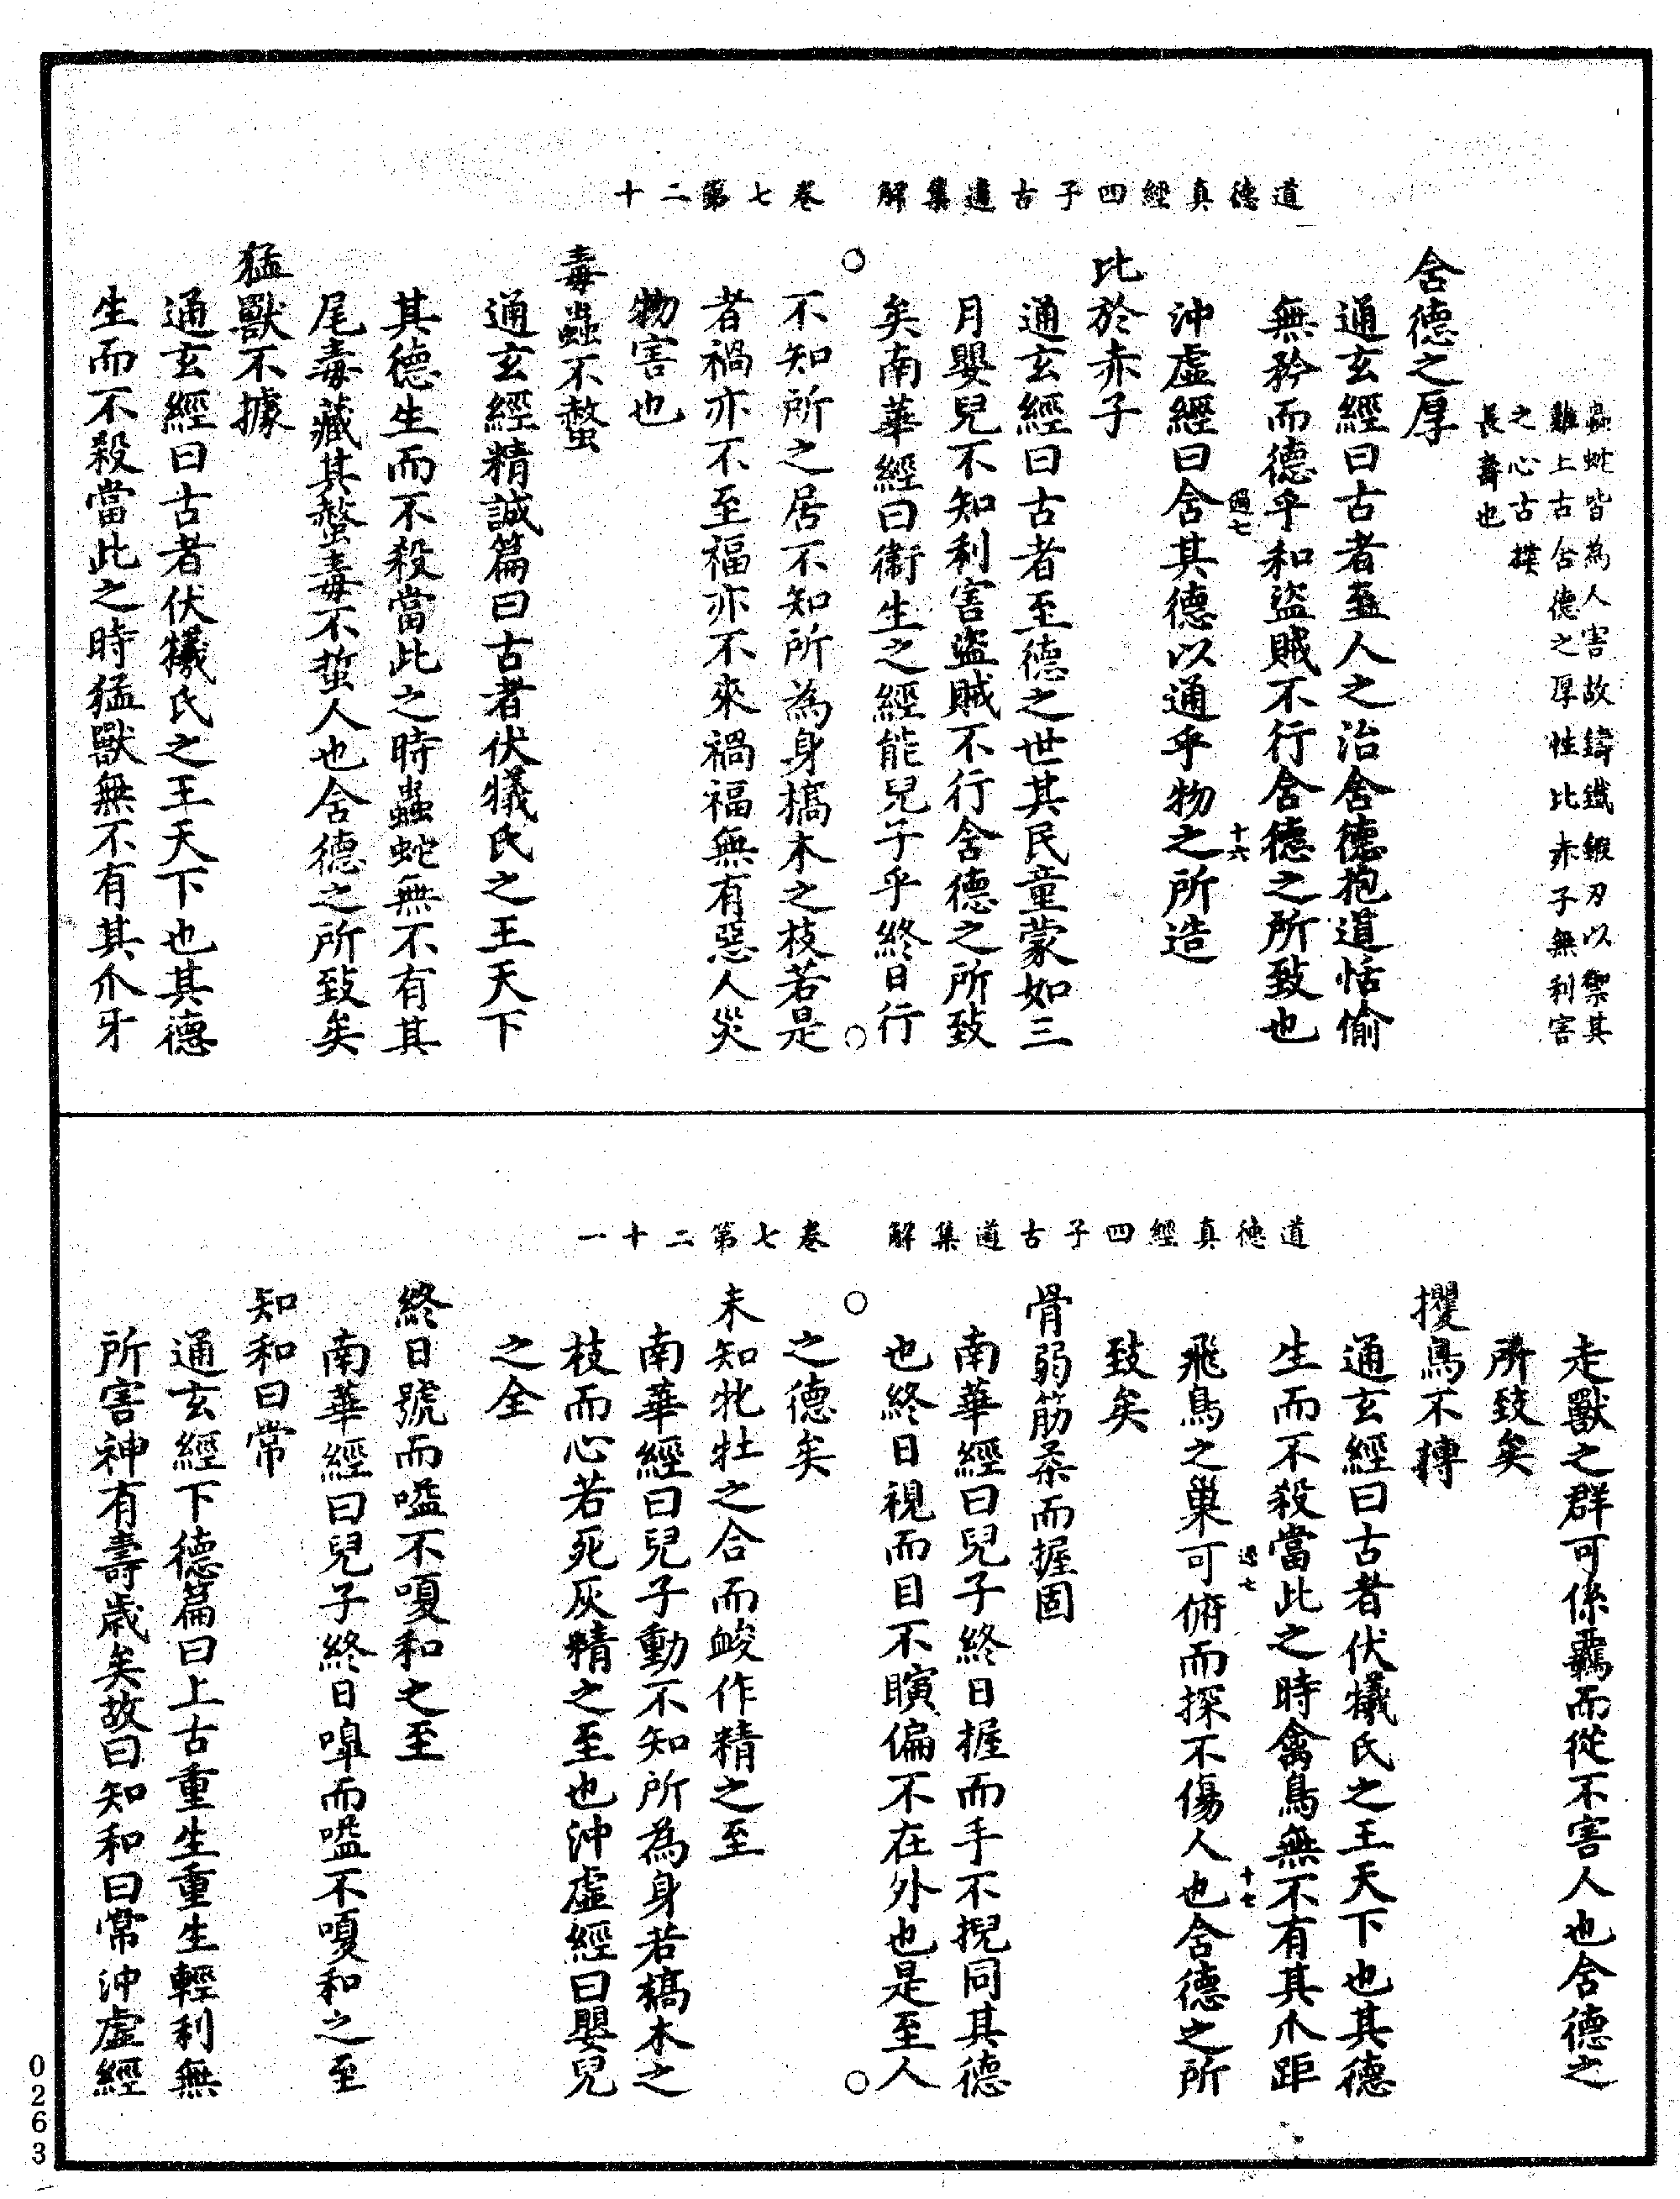 道德真經四子古道集解　卷七第二十
蟲蛇皆為人害故鑄鐵鍛刃以禦其
難上古含德之厚性比赤子無利害
之心古樸
長壽也
含德之厚
通玄經曰古者至人之治含德抱道恬愉
無矜而德乎和盜賊不行含德之所致也
過七
十六
沖虛經曰含其德以通乎物之所造
比於赤子
通玄經曰古者至德之世其民童蒙如三
月嬰兒不知利害盜賊不行含德之所致
矣南華經曰衛生之經能兒子乎終日行
○
○
不知所之居不知所為身槁木之枝若是
者禍亦不至福亦不來禍福無有惡人災
物害也
毒蟲不螫
通玄經精誠篇曰古者伏犧氏之王天下
其德生而不殺當此之時蟲蛇無不有其
尾毒藏其螫毒不蜇人也含德之所致矣
猛獸不據
通玄經曰古者伏犧氏之王天下也其德
生而不殺當此之時猛獸無不有其爪牙
道德真經四子古道集解　卷七第二十一
走獸之群可係羈而從不害人也含德之
所致矣
攫鳥不搏
通玄經曰古者伏犧氏之王天下也其德
生而不殺當此之時禽鳥無不有其爪距
過七
十七
飛鳥之巢可俯而探不傷人也含德之所
致矣
骨弱筋柔而握固
南華經曰兒子終日握而手不掜同其德
也終日視而目不瞚偏不在外也是至人
○
○
之德矣
未知牝牡之合而䘒作精之至
南華經曰兒子動不知所為身若槁木之
枝而心若死灰精之至也沖虛經曰嬰兒
之全
終日號而嗌不嗄和之至
南華經曰兒子終日嘷而嗌不嗄和之至
知和曰常
通玄經下德篇曰上古重生重生輕利無
所害神有壽歲矣故曰知和曰常沖虛經
0263